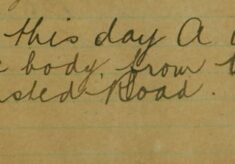 this day A
body from
sted Road.